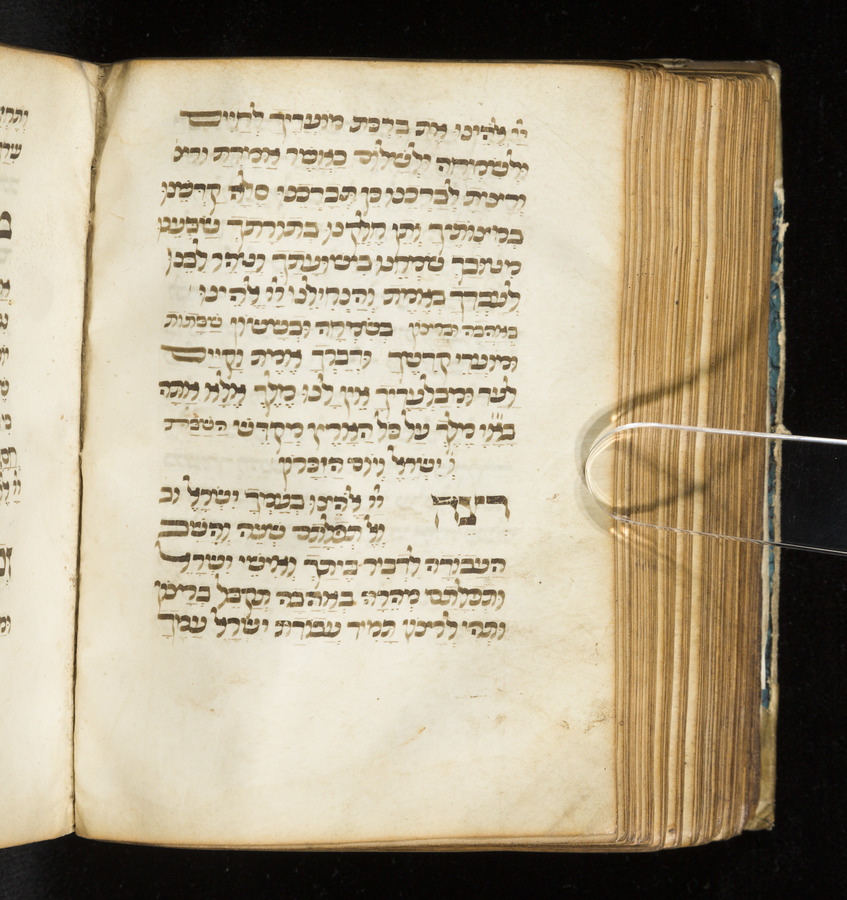 יי אלהינו את ברכת מועדיך לחיים
ולשמחה ולשלום כאשר אמרת ורצ
ורצית לברכנו כן תברכנו סלה קדשנו
במצותיך ותן חלקנו בתורתך שבענו
מטובך שמחנו בישועתך וטהר לבנו
לעבדך באמת והנחילנו יי אלהינו
באהבה וברצון בשמחה ובששון שבתות
ומועדי קדשך ודברך אמת וקיים
לעד ומבלעדיך אין לנו מלך אלא אתה
מלך על כל הארץ מקדש השבת
ו ישראל ויום הזכרון
רצה יי אלהינו בעמך ישראל וב
ואל תפלתם שעה והשב
העבודה לדביר ביתך ואישי ישראל
ותפלתם מהרה באהבה תקבל ברצון
ותהי לרצון תמיד עבודת ישראל עמך